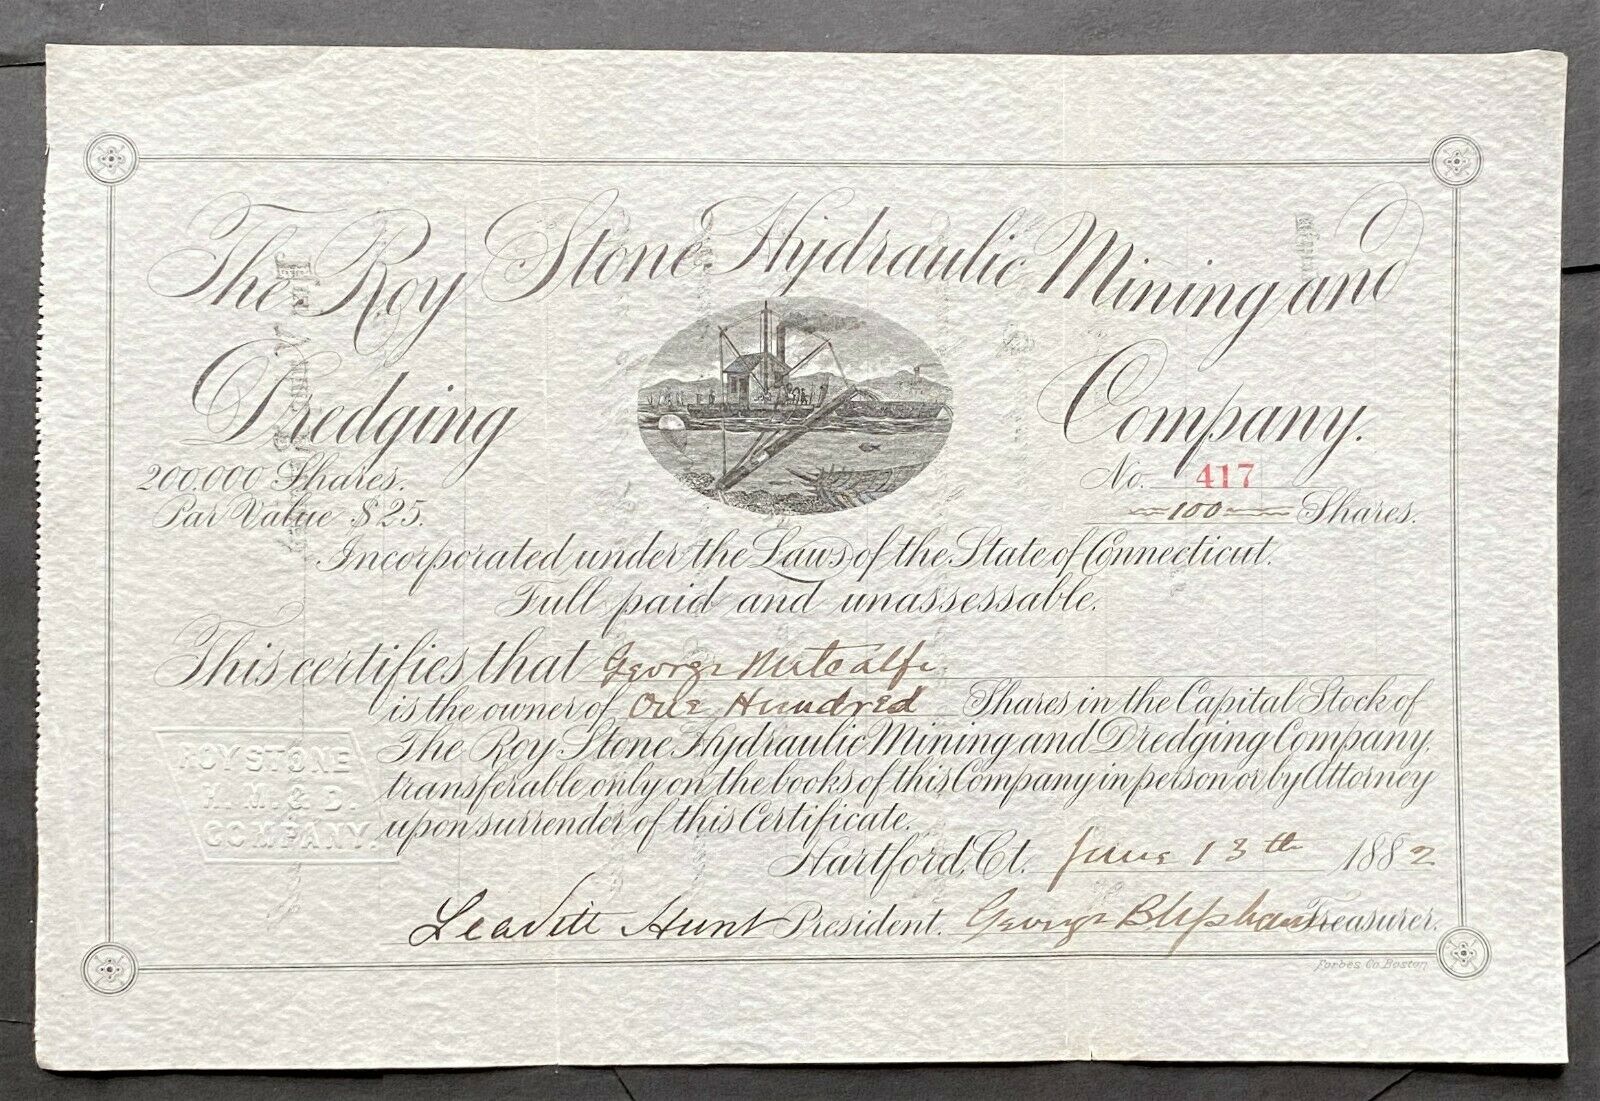 The Roy Stone Hydraulic Mining and
Dredging Company.
200,000 Shares.
Par Value $25.
No. 417
100 Shares.
Incorporated under the Laws of the State of Connecticut.
Full paid and unassessable.
This certifies that George Metcalfe
is the owner of One Hundred Shares in the Capital Stock of
The Roy Stone Hydraulic Mining and Dredging Company,
transferable only on the books of this Company in person or by Attorney
upon surrender of this Certificate.
ROY STONE
H. M. & D.
COMPANY.
Hartford, Ct. June 13th 1882
Leavitt Hunt President. George B Upham Treasurer.
Forbes Co. Boston